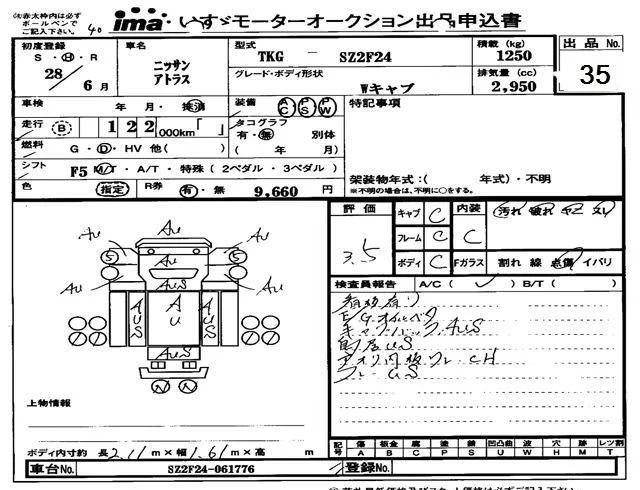 ④赤太枠内は必ず
ボールペンで
ご記入下さい。
40
ima いすゞモーターオークション出品申込書
初度登録
S・H・R
28 6月
車名
ニッサン
アトラス
型式
TKG － SZ2F24
積載 (kg)
1250
出品No.
35
グレード・ボディ形状
Wキャブ
排気量 (cc)
2,950
車検 年 月・抹消
装備 AC PS PW
特記事項
走行 B 122,000km「 」
タコグラフ
有・無 別体
燃料 G・D・HV 他( )
( 年 月)
シフト F5 M/T・A/T・特殊(2ペダル・3ペダル)
架装物年式:( 年式)・不明
※不明の場合は、不明に○をする。
色 指定 R券 有・無 9,660 円
評価
3.5
キャブ C
内装 C
汚れ 破れ ヤニ スレ
フレーム C
ボディ C
Fガラス 割れ 線 点傷 イバリ
検査員報告 A/C( ✓ ) B/T( )
AU AU AU
5 5
AU AUS AU
AUS AU AUS
AUS
N N
キャブバック AUS
US
アオリ内板 CH
US
上物情報
ボディ内寸約 長 2.11 m×幅 1.61 m×高 m
記号 傷 A 板金 B 腐 C 塗 P 錆 S 凹凸曲 U 波 W 穴 H 跡 M レンズ割 T
車台No. SZ2F24-061776 登録No.